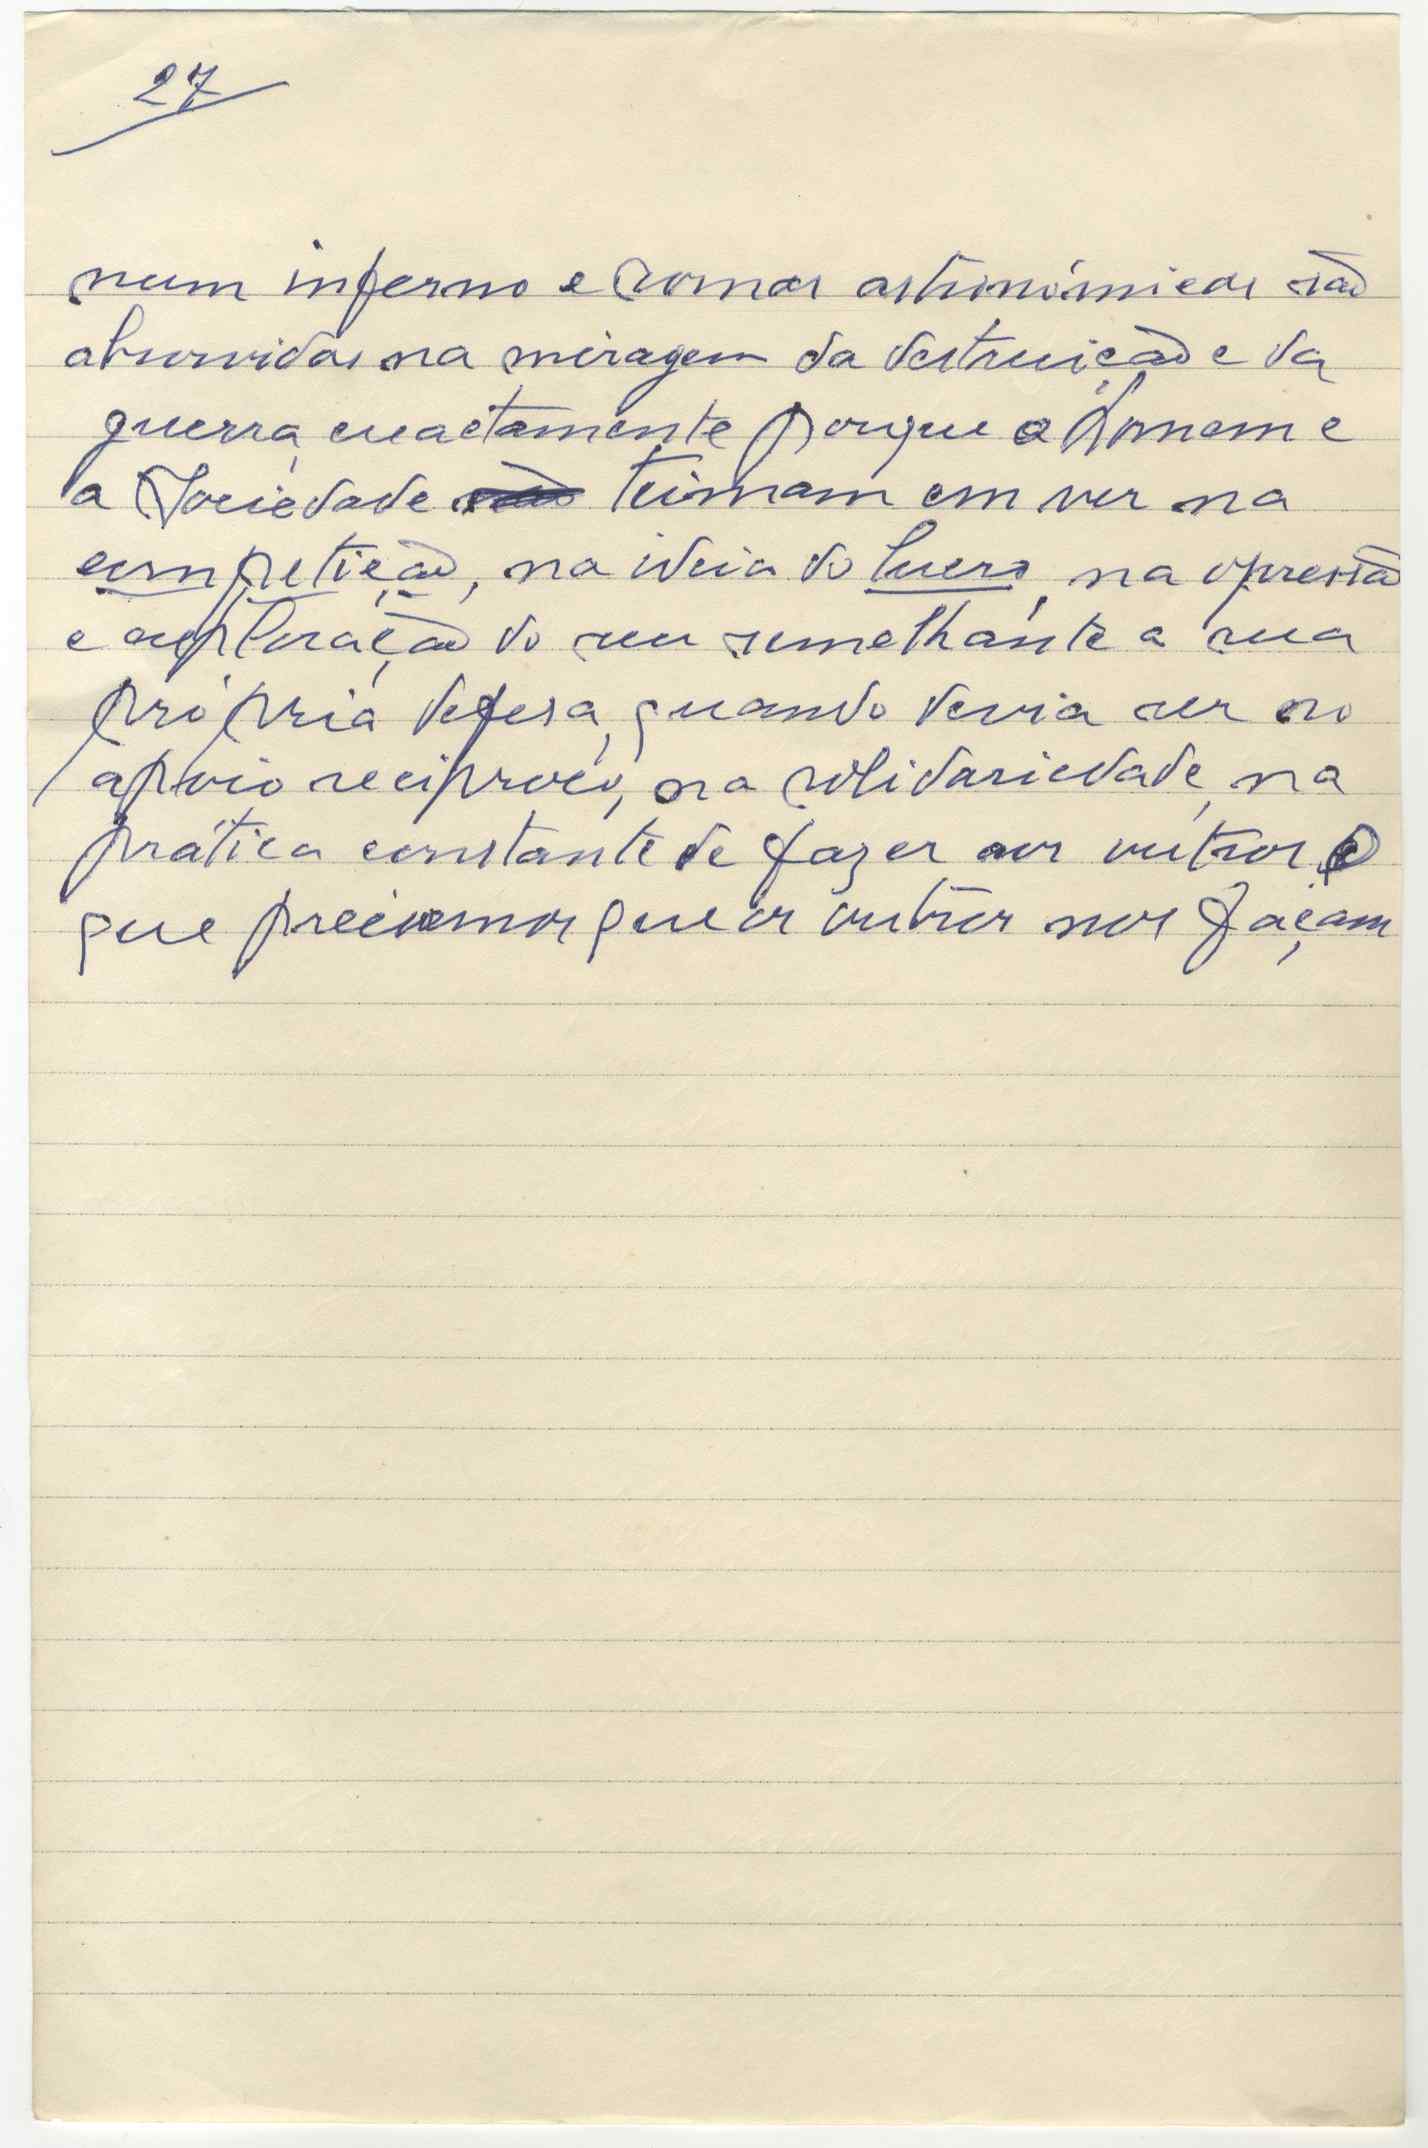 27
num inferno e somas astronómicas são
absorvidas na miragem da destruição e da
guerra, exactamente porque o homem e
a Sociedade teimam em ver na
competição, na ideia do lucro, na opressão
e exploração do seu semelhante a sua
própria defesa, quando devia ser no
apoio recíproco, na solidariedade, na
prática constante de fazer aos outros o
que precisamos que os outros nos façam